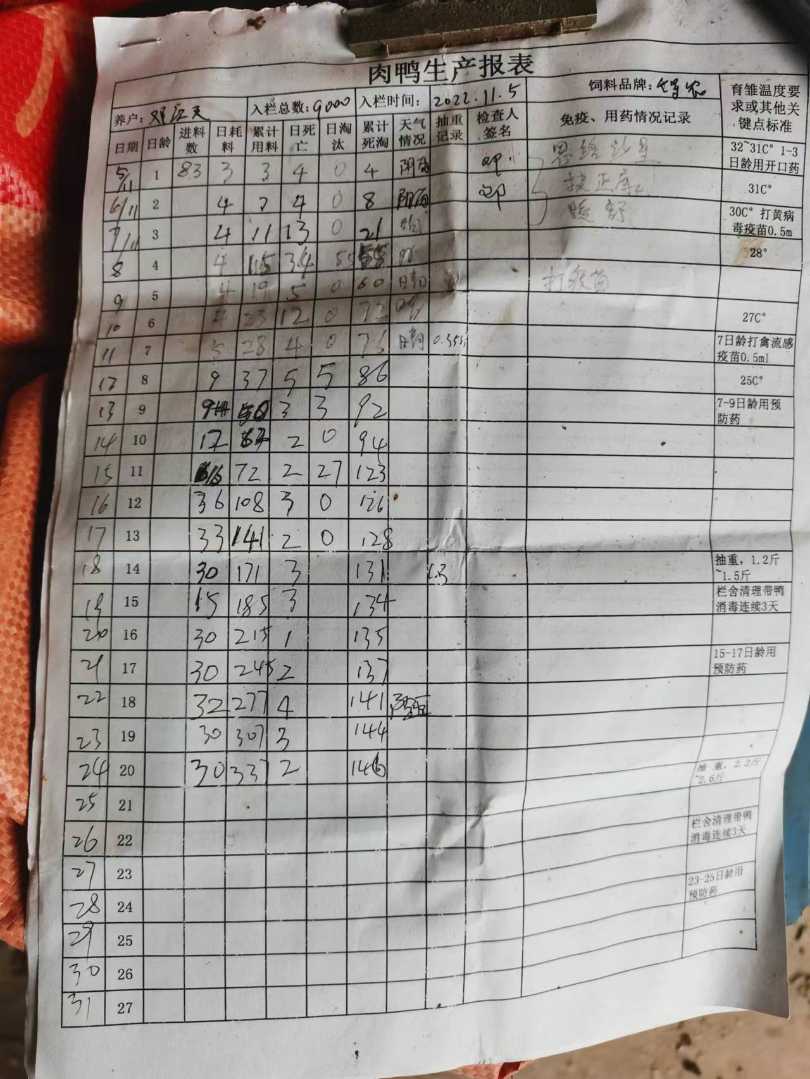 肉鸭生产报表
养户: 入栏总数:9000 入栏时间: 2022.11.5 饲料品牌: 育雏温度要求或其他关键点标准
日期 日龄 进料数 日耗料 累计用料 日死亡 日淘汰 累计死淘 天气情况 抽重记录 检查人签名 免疫、用药情况记录
5/11 1 83 3 3 4 0 4 阴雨 32~31C° 1-3日龄用开口药
6/11 2 4 7 4 0 8 阴雨 31C°
7/11 3 4 11 13 0 21 30C° 打黄病毒疫苗0.5m
8 4 4 15 34 55 28°
9 5 4 19 5 0 60 打疫苗
10 6 4 23 12 0 72 27C°
11 7 5 28 4 0 76 7日龄打禽流感疫苗0.5ml
12 8 9 37 5 5 86 25C°
13 9 3 3 92 7-9日龄用预防药
14 10 17 2 0 94
15 11 72 2 27 123
16 12 36 108 3 0 126
17 13 33 141 2 0 128
18 14 30 171 3 131 1.3 抽重，1.2斤~1.5斤
19 15 15 185 3 134 栏舍清理带鸭消毒连续3天
20 16 30 215 1 135
21 17 30 245 2 137 15-17日龄用预防药
22 18 32 277 4 141
23 19 30 307 3 144
24 20 30 337 2 146 抽重，2.2斤~2.6斤
25 21
26 22 栏舍清理带鸭消毒连续3天
27 23
28 24 23-25日龄用预防药
29 25
30 26
31 27